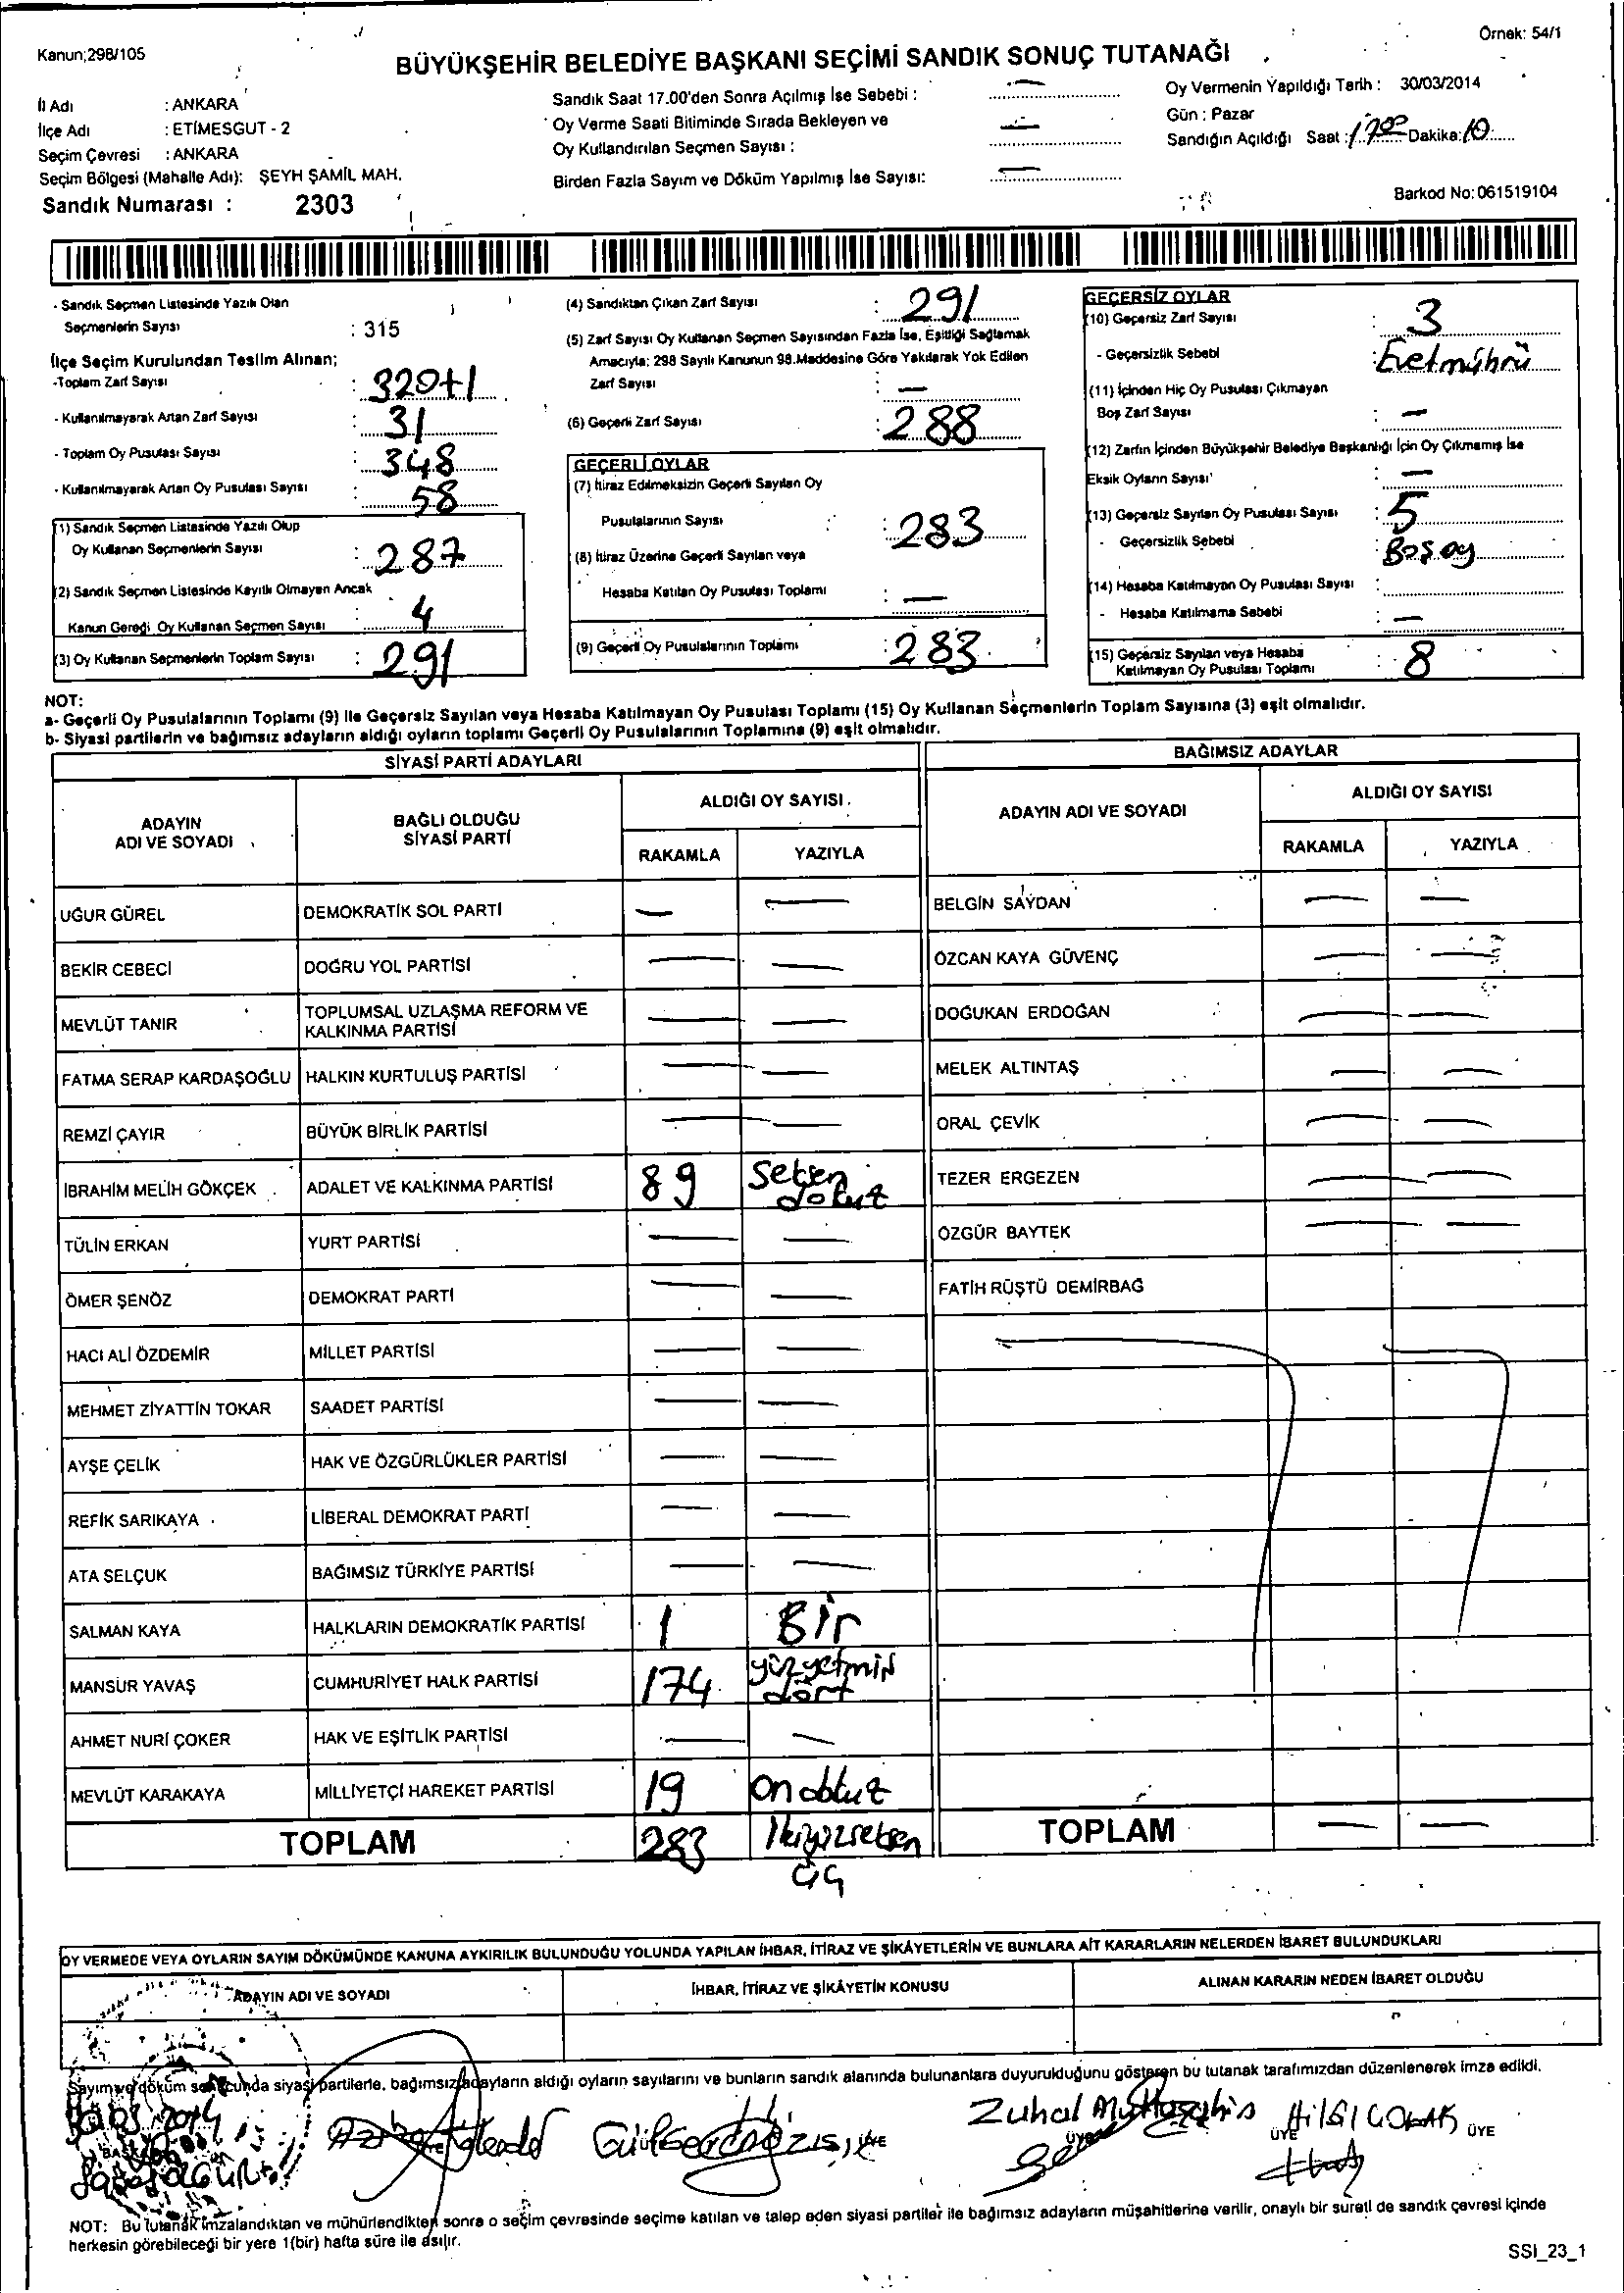 Kanun;298/105
Örnek: 54/1
BÜYÜKŞEHİR BELEDİYE BAŞKANI SEÇİMİ SANDIK SONUÇ TUTANAĞI
İl Adı : ANKARA
İlçe Adı : ETİMESGUT - 2
Seçim Çevresi : ANKARA
Seçim Bölgesi (Mahalle Adı): ŞEYH ŞAMİL MAH.
Sandık Numarası : 2303
Sandık Saat 17.00'den Sonra Açılmış İse Sebebi : —
Oy Verme Saati Bitiminde Sırada Bekleyen ve
Oy Kullandırılan Seçmen Sayısı : —
Birden Fazla Sayım ve Döküm Yapılmış İse Sayısı: —
Oy Vermenin Yapıldığı Tarih : 30/03/2014
Gün : Pazar
Sandığın Açıldığı Saat : 17:00 Dakika: 10
Barkod No: 061519104
- Sandık Seçmen Listesinde Yazılı Olan
Seçmenlerin Sayısı : 315
İlçe Seçim Kurulundan Teslim Alınan;
-Toplam Zarf Sayısı : 320+1
- Kullanılmayarak Artan Zarf Sayısı : 31
- Toplam Oy Pusulası Sayısı : 348
- Kullanılmayarak Artan Oy Pusulası Sayısı : 58
(1) Sandık Seçmen Listesinde Yazılı Olup
Oy Kullanan Seçmenlerin Sayısı : 287
(2) Sandık Seçmen Listesinde Kayıtlı Olmayan Ancak
Kanun Gereği Oy Kullanan Seçmen Sayısı : 4
(3) Oy Kullanan Seçmenlerin Toplam Sayısı : 291
(4) Sandıktan Çıkan Zarf Sayısı : 291
(5) Zarf Sayısı Oy Kullanan Seçmen Sayısından Fazla İse, Eşitliği Sağlamak
Amacıyla; 298 Sayılı Kanunun 98.Maddesine Göre Yakılarak Yok Edilen
Zarf Sayısı : —
(6) Geçerli Zarf Sayısı : 288
GEÇERLİ OYLAR
(7) İtiraz Edilmeksizin Geçerli Sayılan Oy
Pusulalarının Sayısı : 283
(8) İtiraz Üzerine Geçerli Sayılan veya
Hesaba Katılan Oy Pusulası Toplamı : —
(9) Geçerli Oy Pusulalarının Toplamı : 283
GEÇERSİZ OYLAR
(10) Geçersiz Zarf Sayısı : 3
- Geçersizlik Sebebi : Evet mührü
(11) İçinden Hiç Oy Pusulası Çıkmayan
Boş Zarf Sayısı : —
(12) Zarfın İçinden Büyükşehir Belediye Başkanlığı İçin Oy Çıkmamış İse
Eksik Oyların Sayısı : —
(13) Geçersiz Sayılan Oy Pusulası Sayısı : 5
- Geçersizlik Sebebi : Boş oy
(14) Hesaba Katılmayan Oy Pusulası Sayısı :
- Hesaba Katılmama Sebebi : —
(15) Geçersiz Sayılan veya Hesaba
Katılmayan Oy Pusulası Toplamı : 8
NOT:
a- Geçerli Oy Pusulalarının Toplamı (9) ile Geçersiz Sayılan veya Hesaba Katılmayan Oy Pusulası Toplamı (15) Oy Kullanan Seçmenlerin Toplam Sayısına (3) eşit olmalıdır.
b- Siyasi partilerin ve bağımsız adayların aldığı oyların toplamı Geçerli Oy Pusulalarının Toplamına (9) eşit olmalıdır.
SİYASİ PARTİ ADAYLARI
ADAYIN
ADI VE SOYADI
BAĞLI OLDUĞU
SİYASİ PARTİ
ALDIĞI OY SAYISI
RAKAMLA YAZIYLA
UĞUR GÜREL DEMOKRATİK SOL PARTİ — —
BEKİR CEBECİ DOĞRU YOL PARTİSİ — —
MEVLÜT TANIR TOPLUMSAL UZLAŞMA REFORM VE
KALKINMA PARTİSİ — —
FATMA SERAP KARDAŞOĞLU HALKIN KURTULUŞ PARTİSİ — —
REMZİ ÇAYIR BÜYÜK BİRLİK PARTİSİ — —
İBRAHİM MELİH GÖKÇEK ADALET VE KALKINMA PARTİSİ 89 Seksen
dokuz
TÜLİN ERKAN YURT PARTİSİ — —
ÖMER ŞENÖZ DEMOKRAT PARTİ — —
HACI ALİ ÖZDEMİR MİLLET PARTİSİ — —
MEHMET ZİYATTİN TOKAR SAADET PARTİSİ — —
AYŞE ÇELİK HAK VE ÖZGÜRLÜKLER PARTİSİ — —
REFİK SARIKAYA LİBERAL DEMOKRAT PARTİ — —
ATA SELÇUK BAĞIMSIZ TÜRKİYE PARTİSİ — —
SALMAN KAYA HALKLARIN DEMOKRATİK PARTİSİ 1 Bir
MANSUR YAVAŞ CUMHURİYET HALK PARTİSİ 174 yüzyetmiş
dört
AHMET NURİ ÇOKER HAK VE EŞİTLİK PARTİSİ — —
MEVLÜT KARAKAYA MİLLİYETÇİ HAREKET PARTİSİ 19 ondokuz
TOPLAM 283 İkiyüzseksen
üç
BAĞIMSIZ ADAYLAR
ADAYIN ADI VE SOYADI
ALDIĞI OY SAYISI
RAKAMLA YAZIYLA
BELGİN SAYDAN — —
ÖZCAN KAYA GÜVENÇ — —
DOĞUKAN ERDOĞAN — —
MELEK ALTINTAŞ — —
ORAL ÇEVİK — —
TEZER ERGEZEN — —
ÖZGÜR BAYTEK — —
FATİH RÜŞTÜ DEMİRBAĞ
TOPLAM — —
OY VERMEDE VEYA OYLARIN SAYIM DÖKÜMÜNDE KANUNA AYKIRILIK BULUNDUĞU YOLUNDA YAPILAN İHBAR, İTİRAZ VE ŞİKÂYETLERİN VE BUNLARA AİT KARARLARIN NELERDEN İBARET BULUNDUKLARI
ADAYIN ADI VE SOYADI
İHBAR, İTİRAZ VE ŞİKÂYETİN KONUSU
ALINAN KARARIN NEDEN İBARET OLDUĞU
Sayım ve döküm sonucunda siyasi partilerle, bağımsız adayların aldığı oyların sayılarını ve bunların sandık alanında bulunanlara duyurulduğunu gösteren bu tutanak tarafımızdan düzenlenerek imza edildi.
30.03.2014
BAŞKAN
Zuhal
ÜYE
ÜYE
ÜYE
ÜYE
NOT: Bu tutanak imzalandıktan ve mühürlendikten sonra o seçim çevresinde seçime katılan ve talep eden siyasi partiler ile bağımsız adayların müşahitlerine verilir, onaylı bir sureti de sandık çevresi içinde
herkesin görebileceği bir yere 1(bir) hafta süre ile asılır.
SSI_23_1